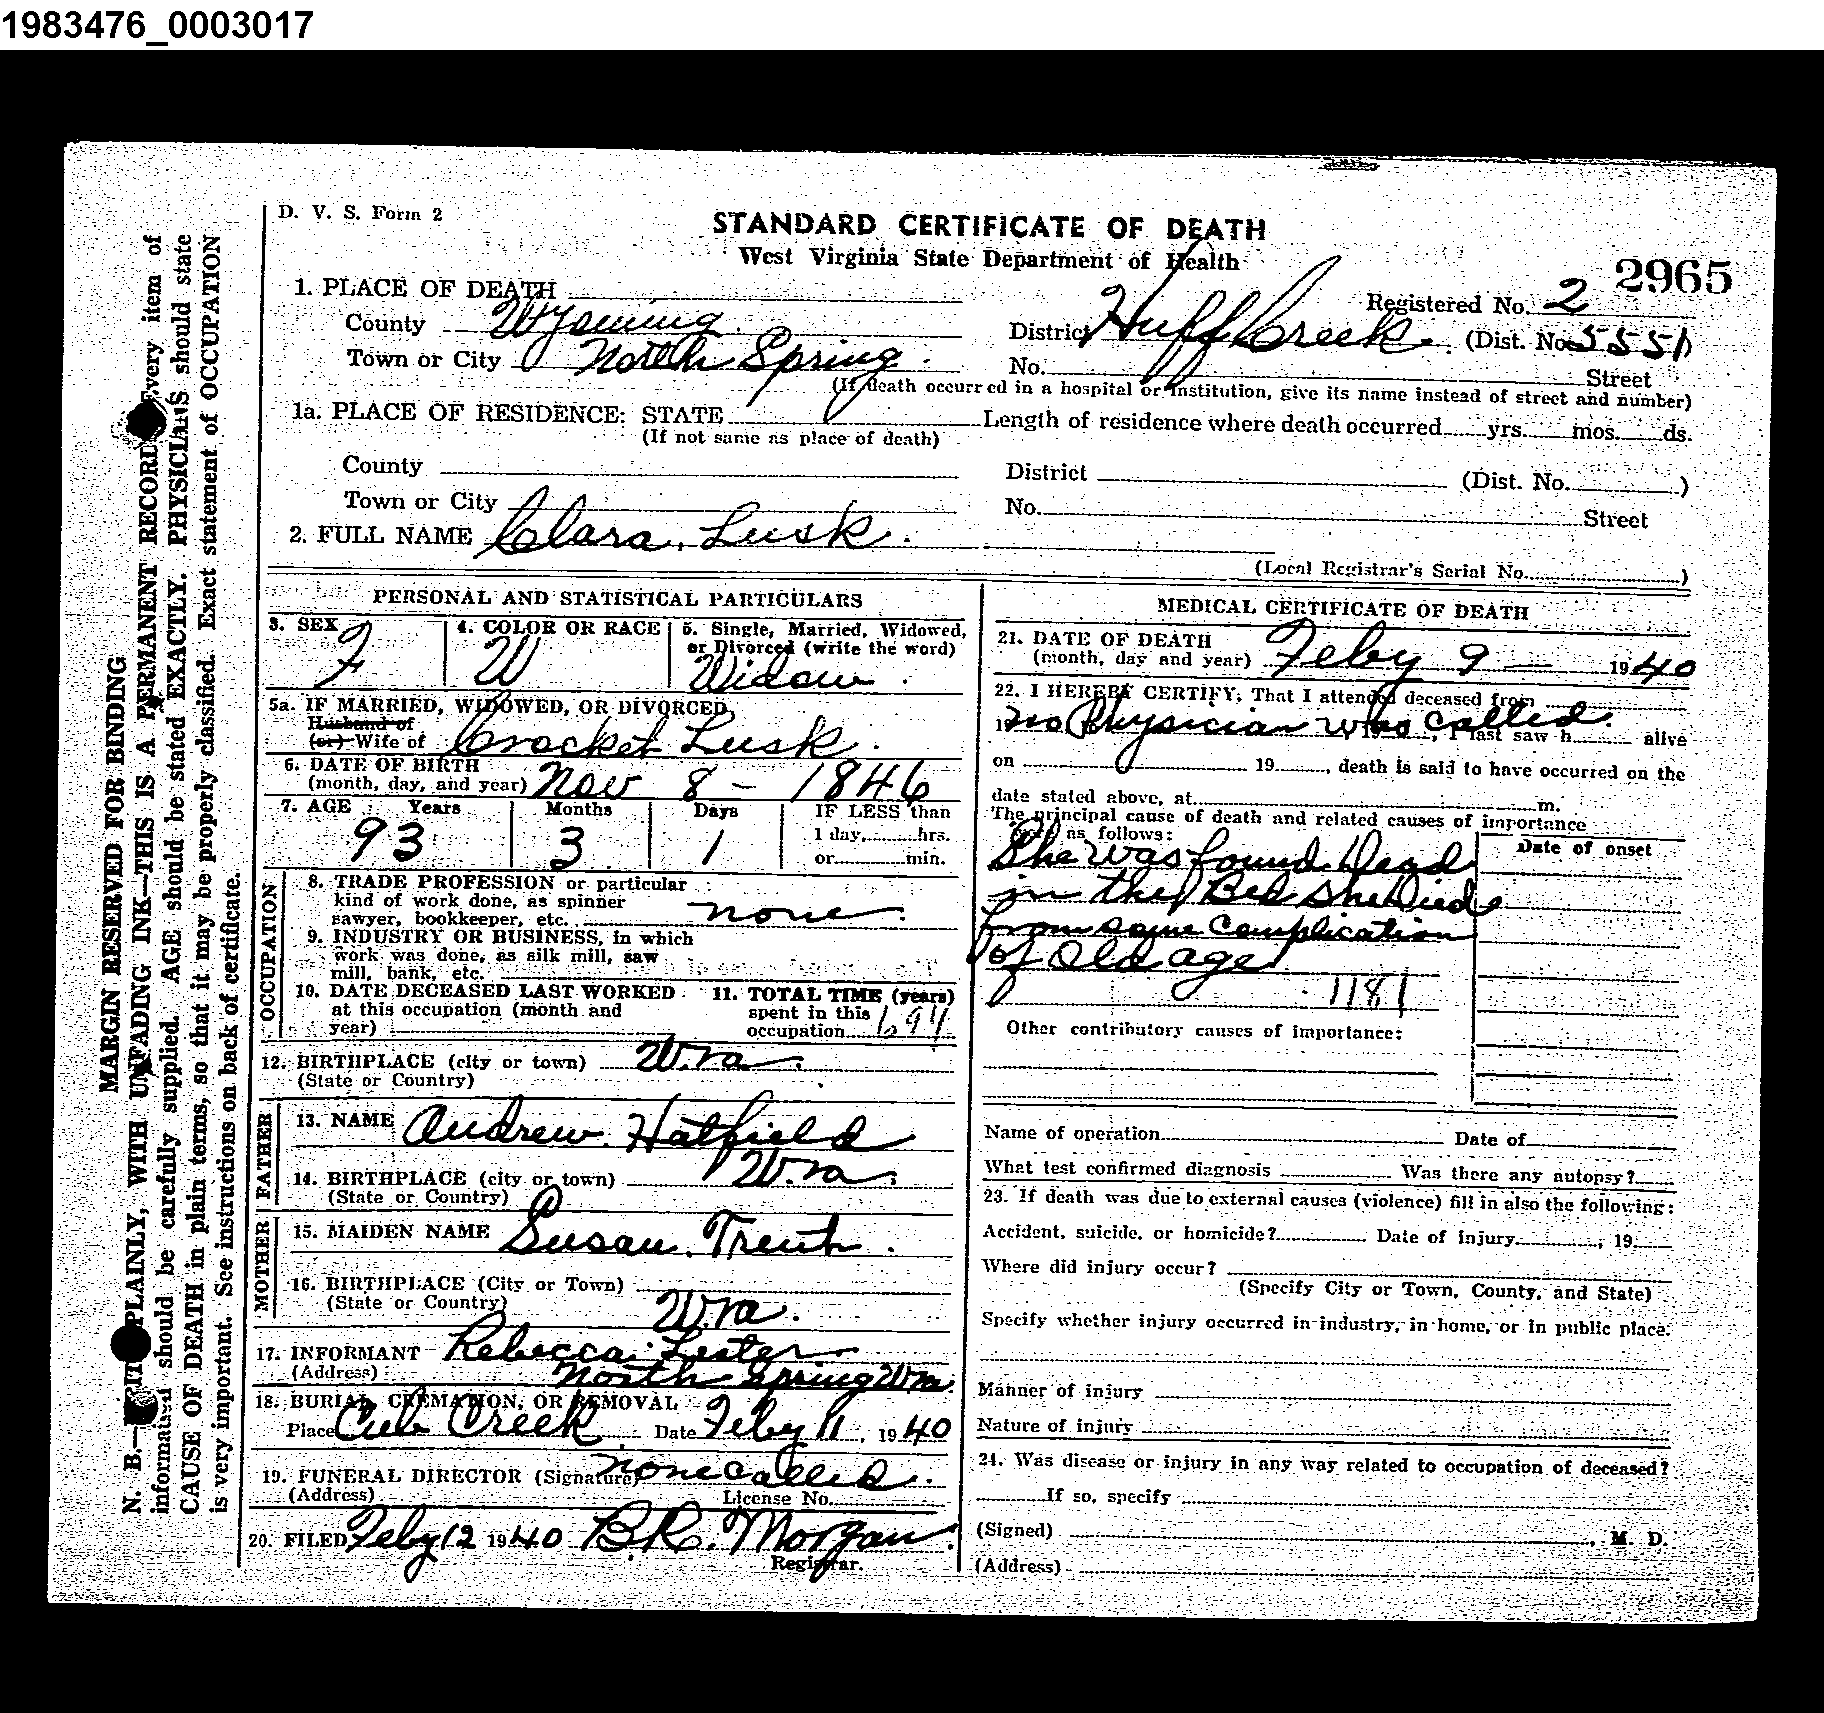 1983476_0003017
D. V. S. Form 2
STANDARD CERTIFICATE OF DEATH
West Virginia State Department of Health
2965
1. PLACE OF DEATH
Registered No. 2
County Wyoming
District Huff Creek (Dist. No. 5551)
Town or City North Spring.
No. Street
(If death occurred in a hospital or institution, give its name instead of street and number)
1a. PLACE OF RESIDENCE: STATE
(If not same as place of death)
Length of residence where death occurred yrs. mos. ds.
County
District (Dist. No. )
Town or City
No. Street
2. FULL NAME Clara. Lusk.
(Local Registrar's Serial No. )
PERSONAL AND STATISTICAL PARTICULARS
3. SEX F
4. COLOR OR RACE W
5. Single, Married, Widowed,
or Divorced (write the word)
Widow.
5a. IF MARRIED, WIDOWED, OR DIVORCED,
Husband of
(or) Wife of Crocket Lusk.
6. DATE OF BIRTH
(month, day, and year) Nov 8 - 1846
7. AGE Years Months Days IF LESS than
93 3 1 1 day, hrs.
or min.
OCCUPATION
8. TRADE PROFESSION or particular
kind of work done, as spinner
sawyer, bookkeeper, etc. none.
9. INDUSTRY OR BUSINESS, in which
work was done, as silk mill, saw
mill, bank, etc.
10. DATE DECEASED LAST WORKED
at this occupation (month and
year)
11. TOTAL TIME (years)
spent in this
occupation
12. BIRTHPLACE (city or town) W.va.
(State or Country)
FATHER
13. NAME Andrew. Hatfield
14. BIRTHPLACE (city or town) W.va.
(State or Country)
MOTHER
15. MAIDEN NAME Susan. Trent.
16. BIRTHPLACE (City or Town)
(State or Country) W.va.
17. INFORMANT Rebecca Lester
(Address) North Spring W.va.
18. BURIAL, CREMATION, OR REMOVAL
Place Cub Creek Date Feby 11, 1940
19. FUNERAL DIRECTOR (Signature) none called.
(Address) License No.
20. FILED Feby 12 1940 B.R. Morgan.
Registrar.
MEDICAL CERTIFICATE OF DEATH
21. DATE OF DEATH
(month, day and year) Feby 9 — 1940
22. I HEREBY CERTIFY, That I attended deceased from
19 no Physician was called. , I last saw h alive
on 19 , death is said to have occurred on the
date stated above, at m.
The principal cause of death and related causes of importance
as follows:
Date of onset
She was found Dead
in the Bed she Died
from some Complication
of Old age
1181
Other contributory causes of importance:
Name of operation Date of
What test confirmed diagnosis Was there any autopsy?
23. If death was due to external causes (violence) fill in also the following:
Accident, suicide, or homicide? Date of injury , 19
Where did injury occur?
(Specify City or Town, County, and State)
Specify whether injury occurred in industry, in home, or in public place.
Manner of injury
Nature of injury
24. Was disease or injury in any way related to occupation of deceased?
If so, specify
(Signed) , M. D.
(Address)
MARGIN RESERVED FOR BINDING
N. B.— PLAINLY, WITH UNFADING INK—THIS IS A PERMANENT RECORD Every item of
information should be carefully supplied. AGE should be stated EXACTLY. PHYSICIANS should state
CAUSE OF DEATH in plain terms, so that it may be properly classified. Exact statement of OCCUPATION
is very important. See instructions on back of certificate.